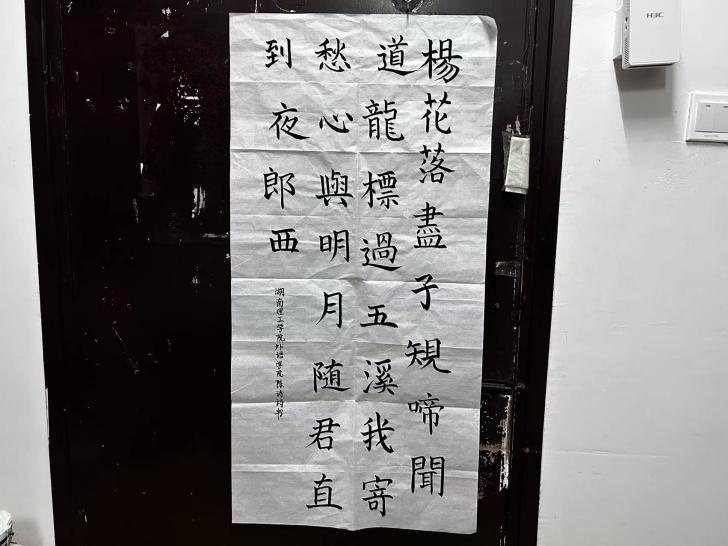 楊花落盡子規啼聞
道龍標過五溪我寄
愁心與明月随君直
到夜郎西
湖南理工学院外语学院陈诗韵书
H3C